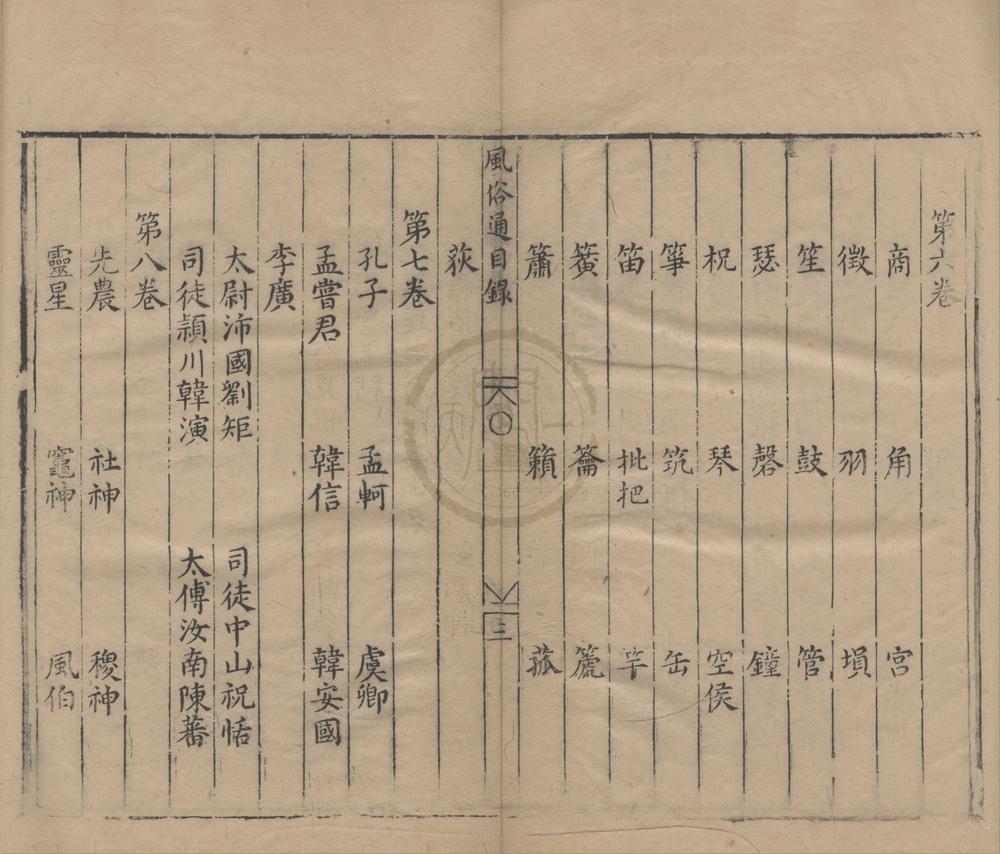 第六卷
商 角 宮
徵 羽 塤
笙 鼓 管
瑟 磬 鐘
柷 琴 空侯
箏 筑 缶
笛 批把 竽
簧 籥 篪
簫 籟 菰
荻
風俗通目錄 三
第七卷
孔子 孟軻 虞卿
孟嘗君 韓信 韓安國
李廣
太尉沛國劉矩 司徒中山祝恬
司徒潁川韓演 太傅汝南陳蕃
第八卷
先農 社神 稷神
靈星 竈神 風伯